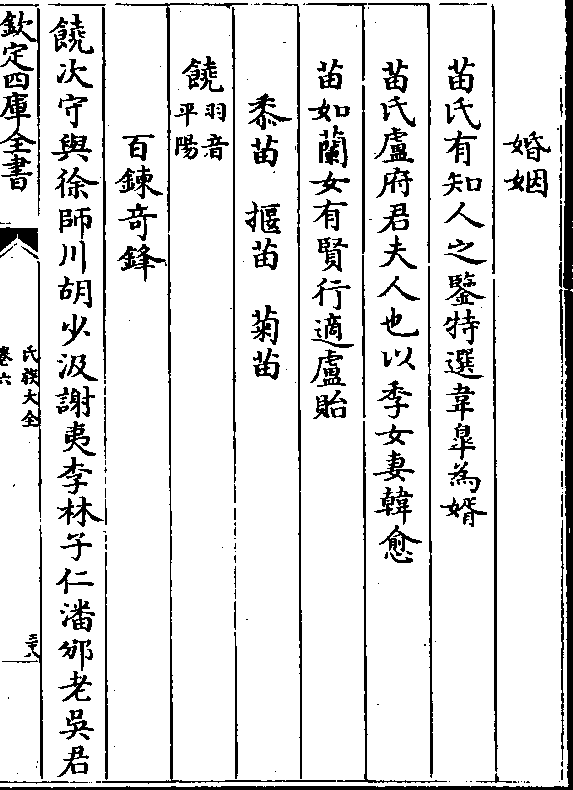 婚姻
苗氏有知人之鑒特選韋臯為婿
苗氏盧府君夫人也以季女妻韓愈
苗如蘭女有賢行適盧貽
黍苗　揠苗　菊苗
饒羽音平陽
百鍊竒鋒
饒次守與徐師川胡少汲謝夷季林子仁潘邠老吳君
欽定四庫全書
氏族大全
卷六
三六